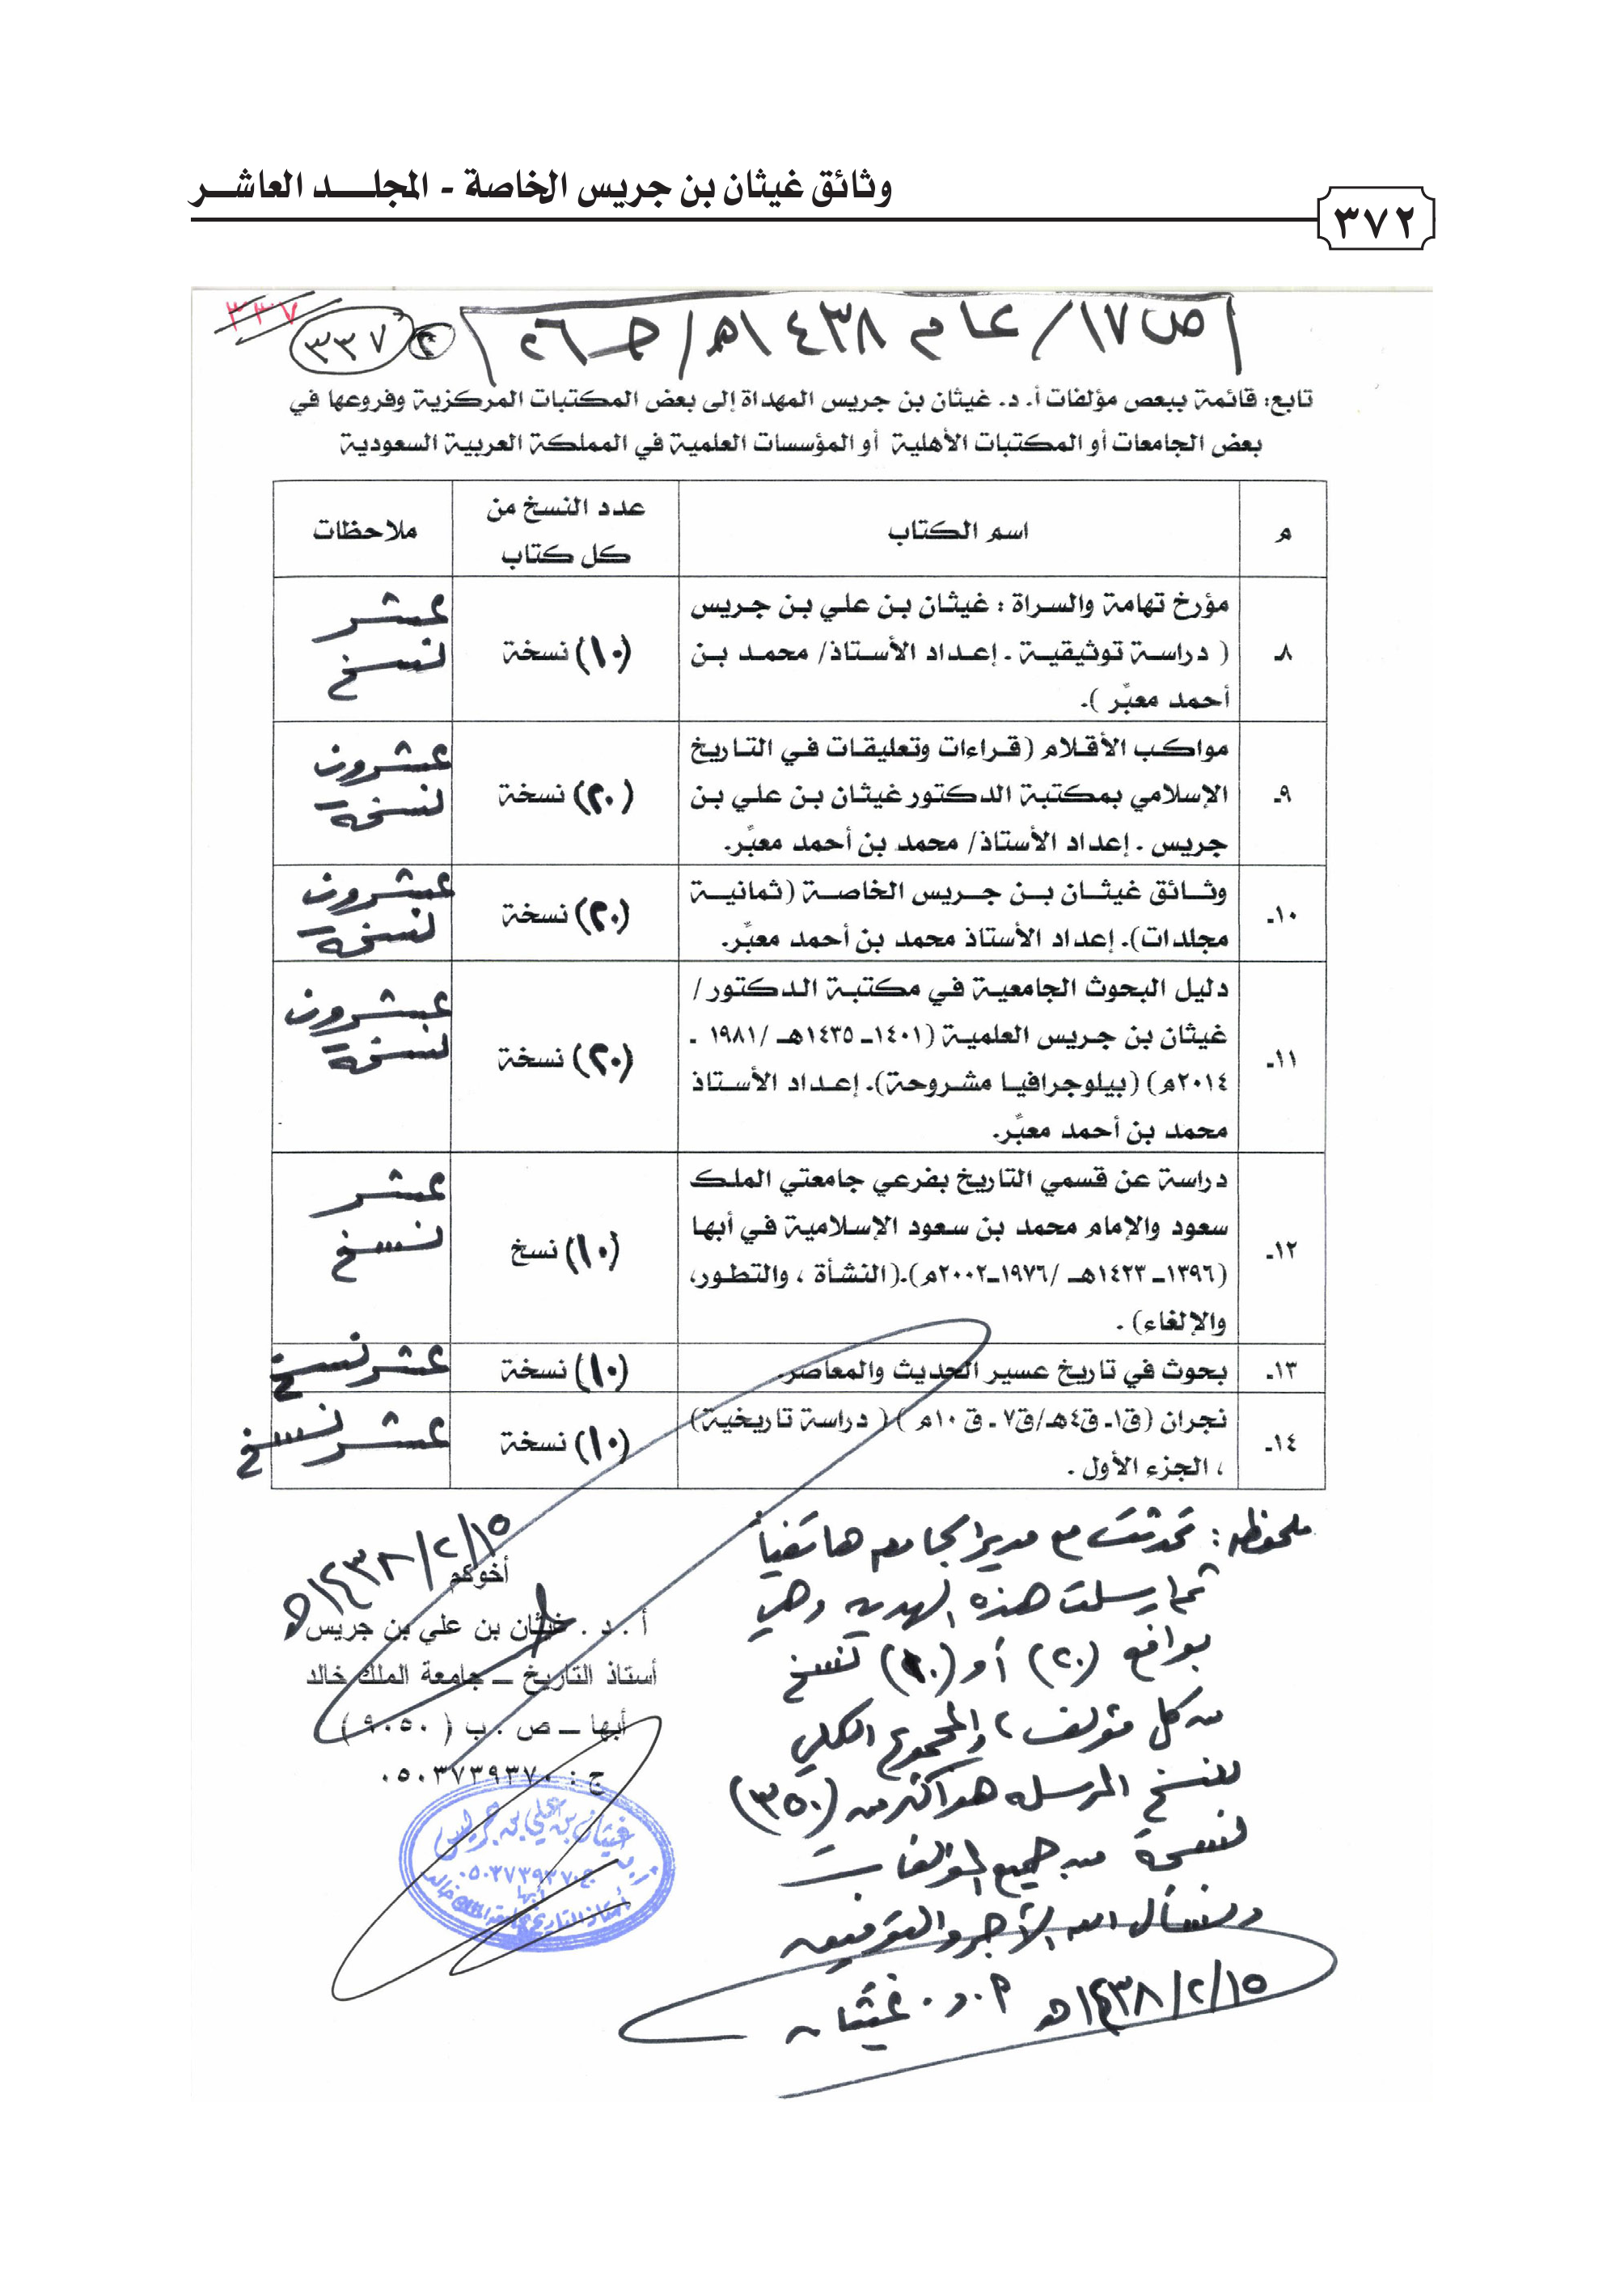 وثائق غيثان بن جريس الخاصة - المجلـــد العاشـــر
٣٧٢
ص١٧/ عام ١٤٣٨هـ/ جـ٢٦
٣٣٧
٣٣٧
تابع: قائمة ببعص مؤلفات أ. د. غيثان بن جريس المهداة إلى بعض المكتبات المركزية وفروعها في
بعض الجامعات أو المكتبات الأهلية أو المؤسسات العلمية في المملكة العربية السعودية
م
اسم الكتاب
عدد النسخ من
كل كتاب
ملاحظات
٨ـ
مؤرخ تهامة والسراة : غيثان بن علي بن جريس
( دراسة توثيقية ـ إعداد الأستاذ/ محمد بن
أحمد معبِّر ).
(١٠) نسخة
عشر
نسخ
٩ـ
مواكب الأقلام (قراءات وتعليقات في التاريخ
الإسلامي بمكتبة الدكتور غيثان بن علي بن
جريس ـ إعداد الأستاذ/ محمد بن أحمد معبِّر.
(٢٠) نسخة
عشرون
نسخة
١٠ـ
وثائق غيثان بن جريس الخاصة (ثمانية
مجلدات). إعداد الأستاذ محمد بن أحمد معبِّر.
(٢٠) نسخة
عشرون
نسخة
١١ـ
دليل البحوث الجامعية في مكتبة الدكتور /
غيثان بن جريس العلمية (١٤٠١ـ ١٤٣٥هـ /١٩٨١ ـ
٢٠١٤م) (بيلوجرافيا مشروحة). إعداد الأستاذ
محمد بن أحمد معبِّر.
(٢٠) نسخة
عشرون
نسخة
١٢ـ
دراسة عن قسمي التاريخ بفرعي جامعتي الملك
سعود والإمام محمد بن سعود الإسلامية في أبها
(١٣٩٦ـ ١٤٢٣هـ /١٩٧٦ـ٢٠٠٢م).(النشأة ، والتطور،
والإلغاء) .
(١٠) نسخ
عشر
نسخ
١٣ـ
بحوث في تاريخ عسير الحديث والمعاصر.
(١٠) نسخة
عشر نسخ
١٤ـ
نجران (ق١ـ ق٤هـ/ق٧ ـ ق١٠م ) ( دراسة تاريخية)
، الجزء الأول .
(١٠) نسخة
عشر نسخ
ملحوظة : تحدثت مع مدير الجامعة هاتفياً
ثم ارسلت هذه الهدية وهي
بواقع (٢٠) أو (١٠) نسخ
من كل مؤلف ، والمجموع الكلي
للنسخ المرسله هو أكثر من (٣٥٠)
نسخة من جميع المؤلفات
ونسأل الله الأجر والتوفيق
١٥/٢/١٤٣٨هـ أ.د. غيثان
١٥/٢/١٤٣٨هـ
أخوكم
أ . د . غيثان بن علي بن جريس
أستاذ التاريخ ــ جامعة الملك خالد
أبها ــ ص . ب ( ٩٠٥٠ )
ج : ٠٥٠٣٧٣٩٣٧٠
غيثان بن علي بن جريس
ج ٠٥٠٣٧٣٩٣٧٠
أبها
أستاذ التاريخ بجامعة الملك خالد